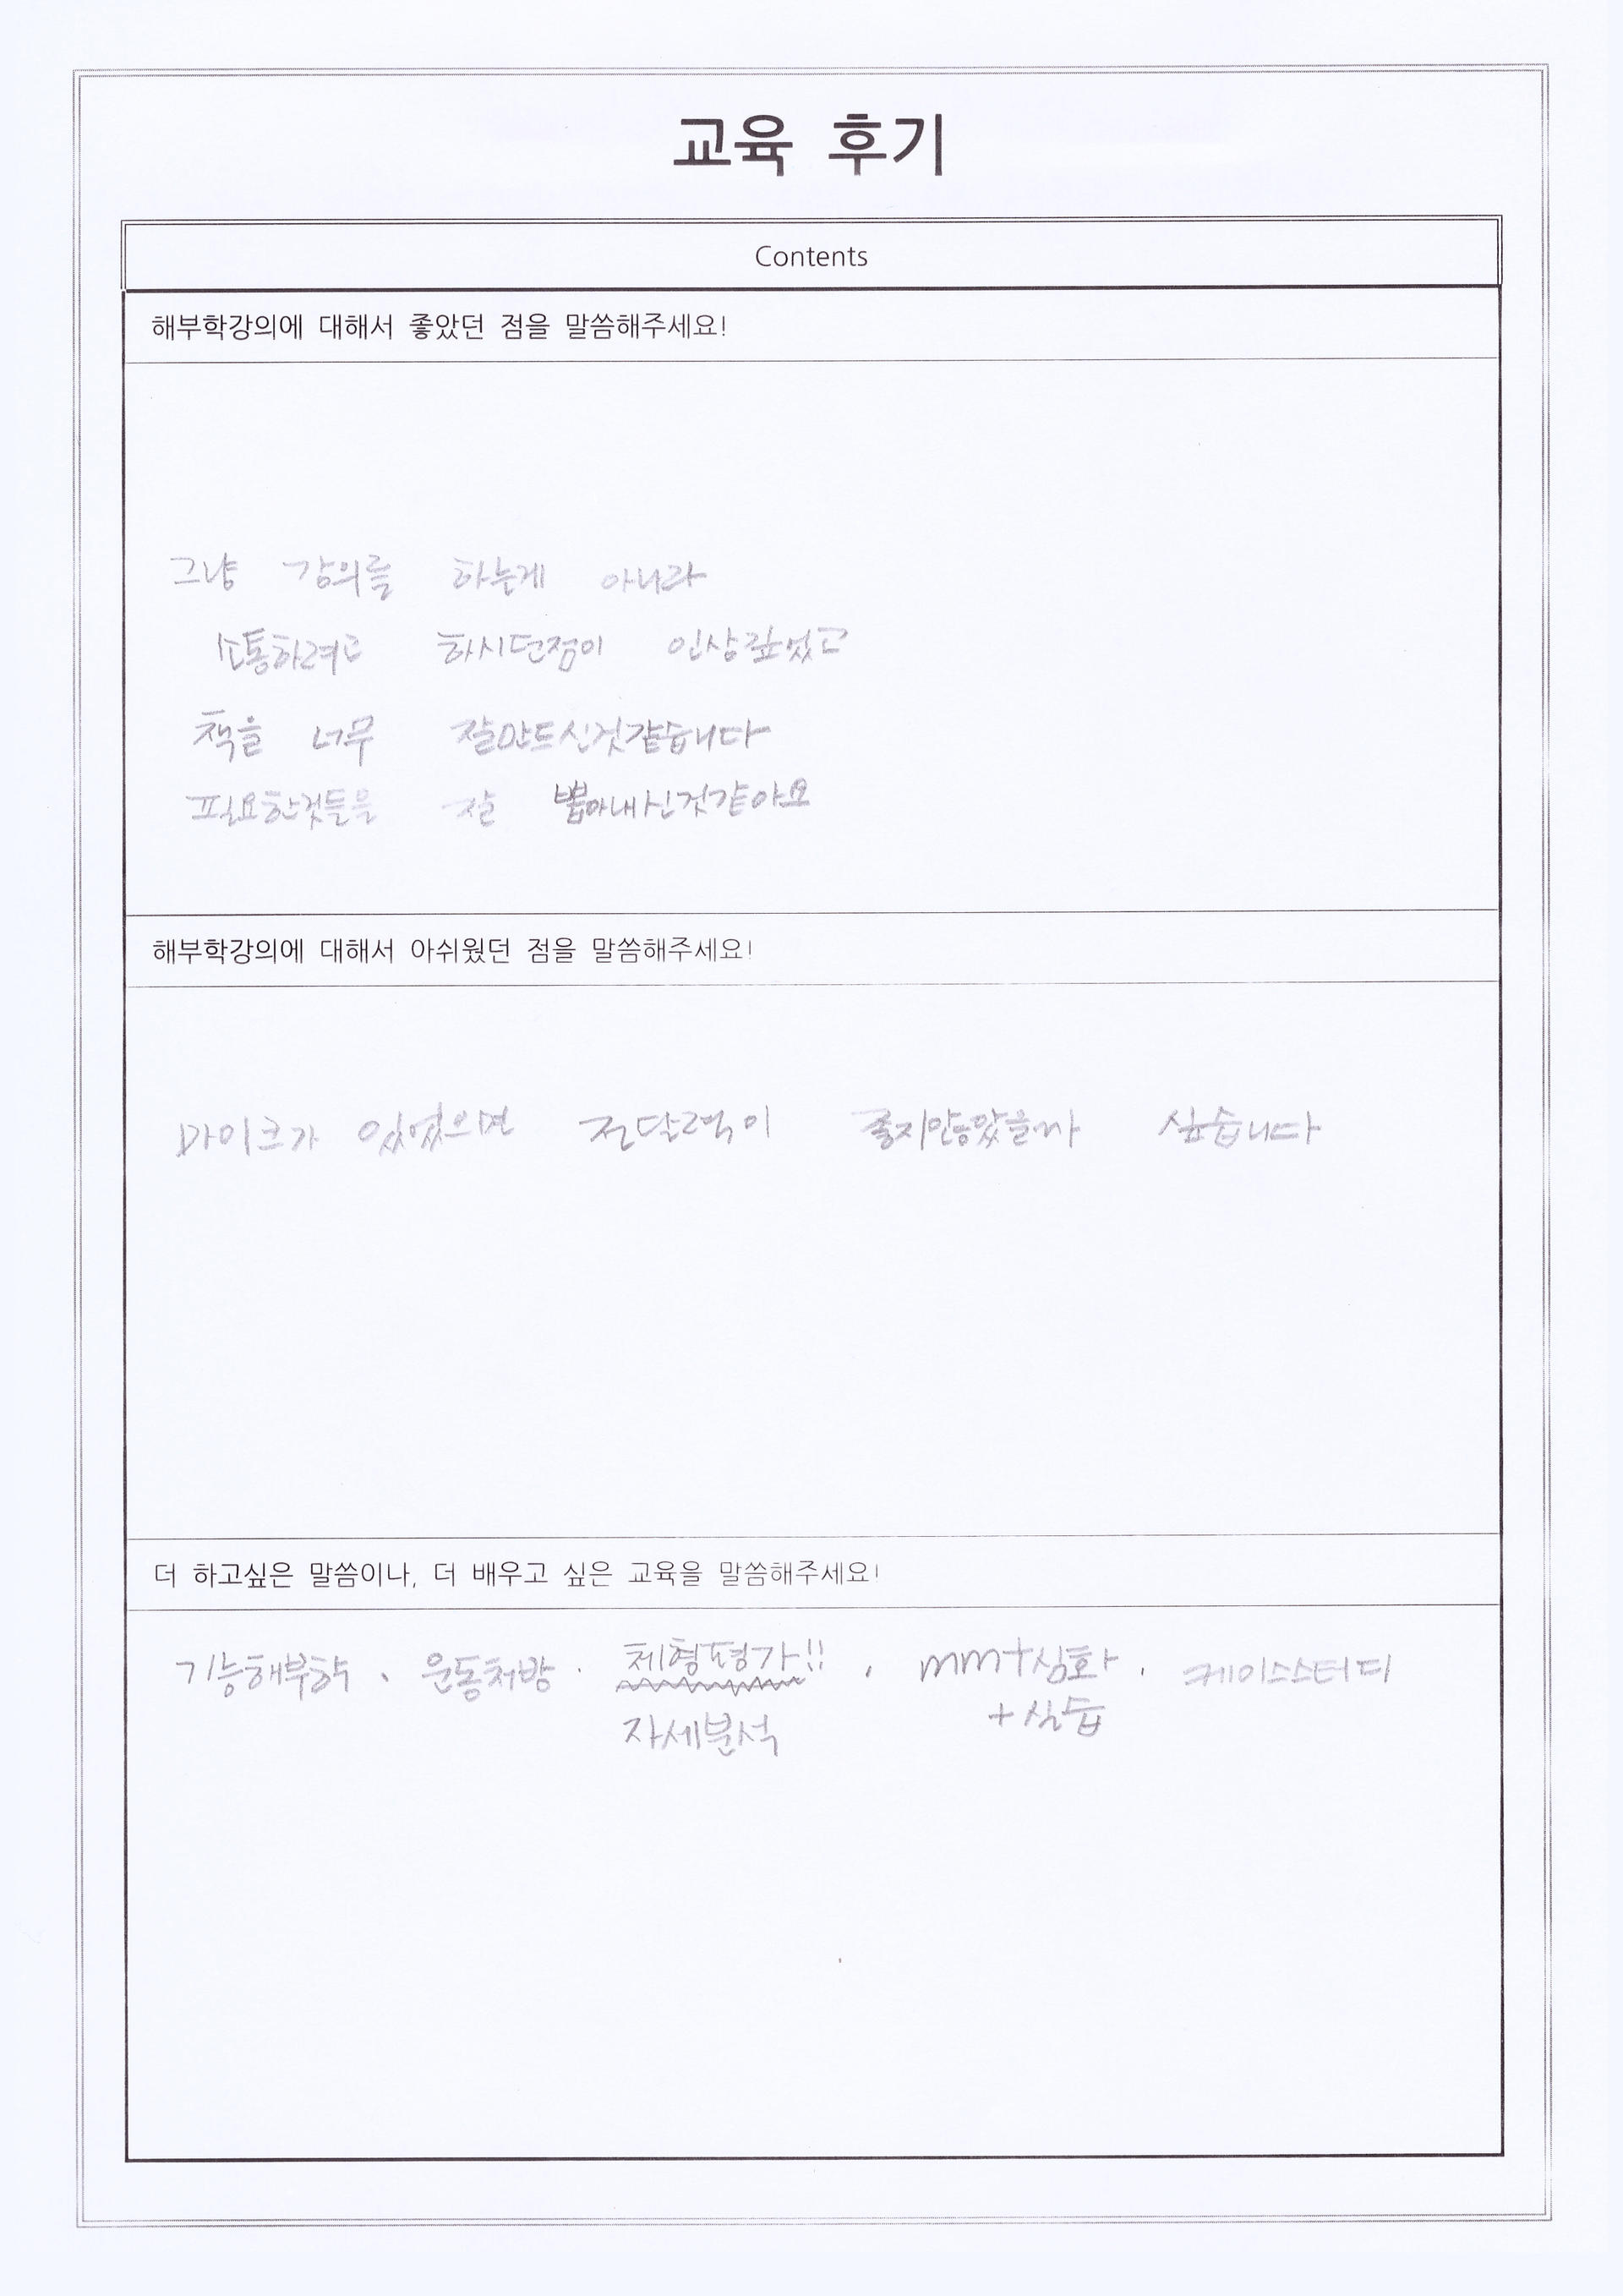 교육 후기
Contents
해부학강의에 대해서 좋았던 점을 말씀해주세요!
그냥 강의를 하는게 아니라
소통하려고 하시던점이 인상깊었고
책을 너무 잘만드신것같습니다
필요한것들을 잘 뽑아내신것같아요
해부학강의에 대해서 아쉬웠던 점을 말씀해주세요!
마이크가 있었으면 전달력이 좋지않았을까 싶습니다
더 하고싶은 말씀이나, 더 배우고 싶은 교육을 말씀해주세요!
기능해부학、 운동처방 · 체형평가!! , mmt심화 , 케이스스터디
자세분석 +실습